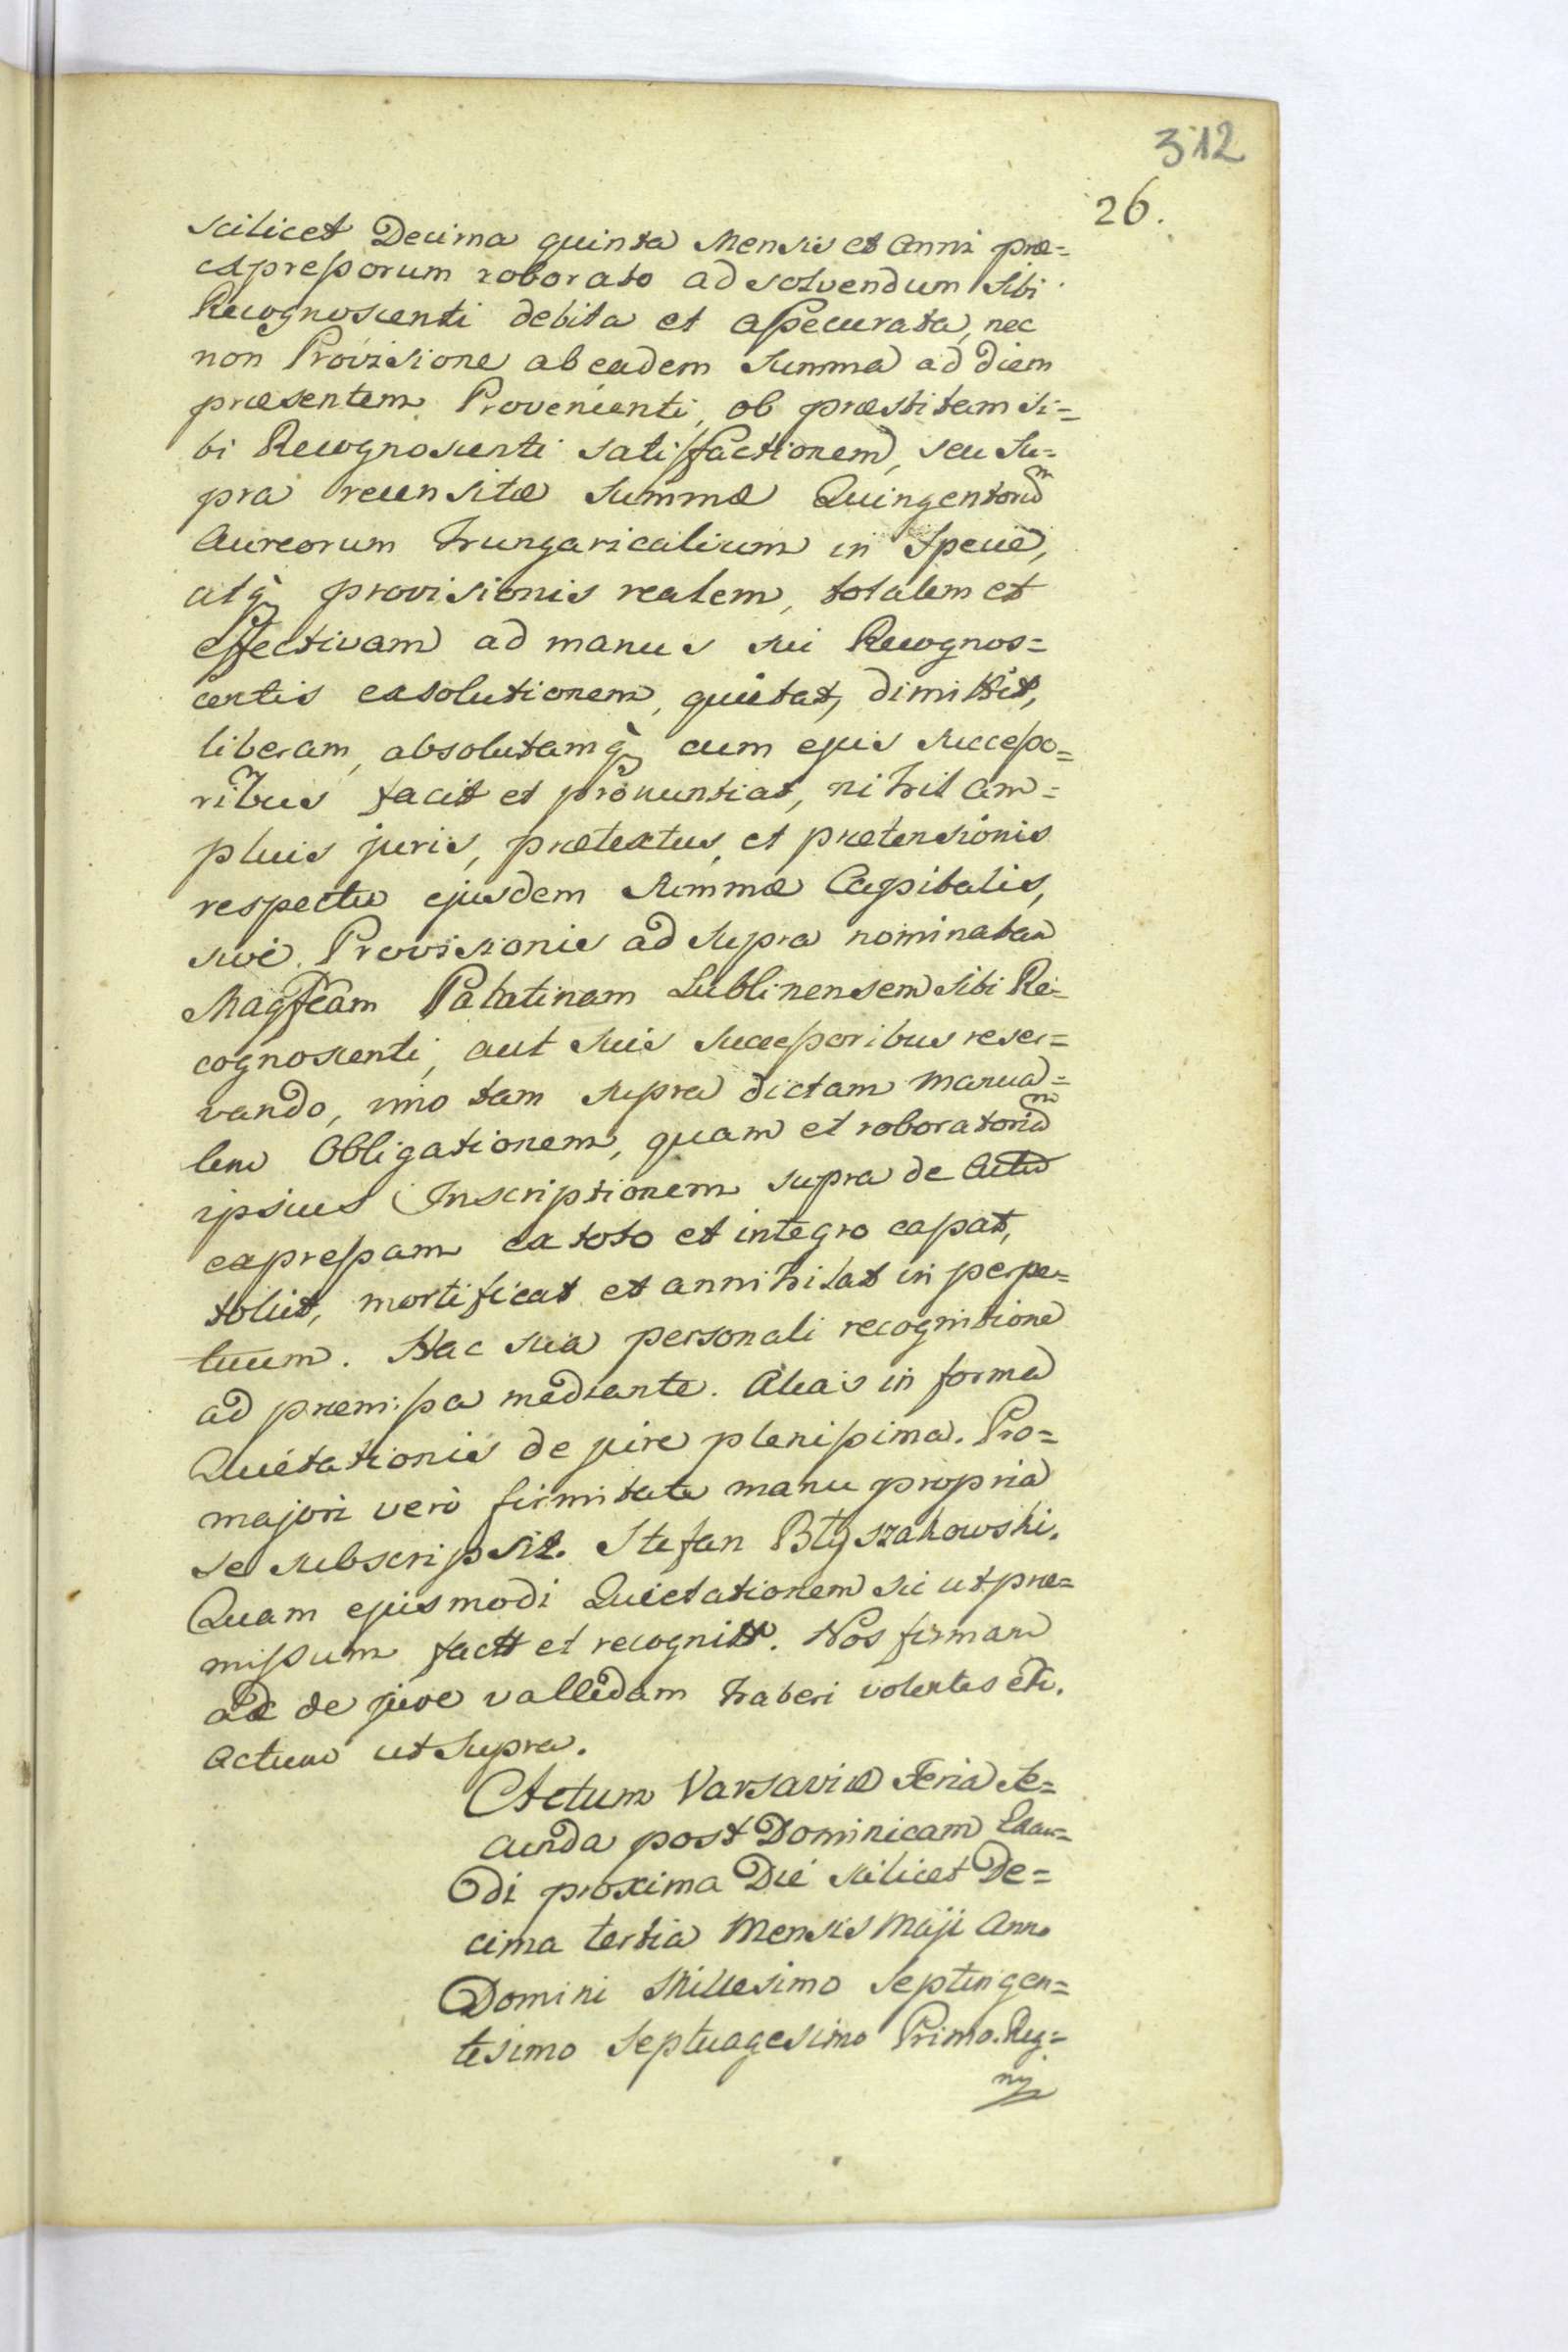 312
26.
scilicet Decima quinta Mensis et Anni præ=
expressorum roborato ad solvendum sibi
Recognoscenti debita et assecurata, nec
non Provisione ab eadem Summa ad diem
præsentem Provenienti, ob præstitam si=
bi Recognoscenti satisfactionem, seu Su=
pra recensitæ Summæ Quingentorũm
Aureorum Hungaricalium in Specie,
atq̀ provisionis realem, totalem et
effectivam ad manus sui Recognos=
centis exsolutionem, quietat, dimittit,
liberam, absolutamq̀ cum ejus Successo=
ribus facit et pronuntiat, nihil am=
plius juris, prætextus, et prætensionis
respectu ejusdem Summæ Capitalis,
sivè Provisionis ad supra nominatam
Magfcam Palatinam Lublinensem sibi Re=
cognoscenti, aut suis Successoribus reser=
vando, imo tam supra dictam manua=
lem Obligationem, quam et roboratoriam
ipsius Inscriptionem supra de Actu
expressam ex toto et integro cassat,
tollit, mortificat et annihilat in perpe=
tuum. Hac sua personali recognitione
ad præmissa mediante. Alias in forma
Quietationis de jure plenissima. Pro=
majori verò firmitate manu propria
se subscripsit. Stefan Błyszakowski.
Quam ejusmodi Quietationem sic ut præ=
missum factt et recognitt. Nos firmam
ac de jure vallidam haberi volentes etc.
Actum ut Supra.
Actum Varsaviæ Feria Se=
cunda post Dominicam Exau=
di proxima Die scilicet De=
cima tertia Mensis Maji Anno
Domini Millesimo Septingen=
tesimo Septuagesimo Primo. Reg=
nj